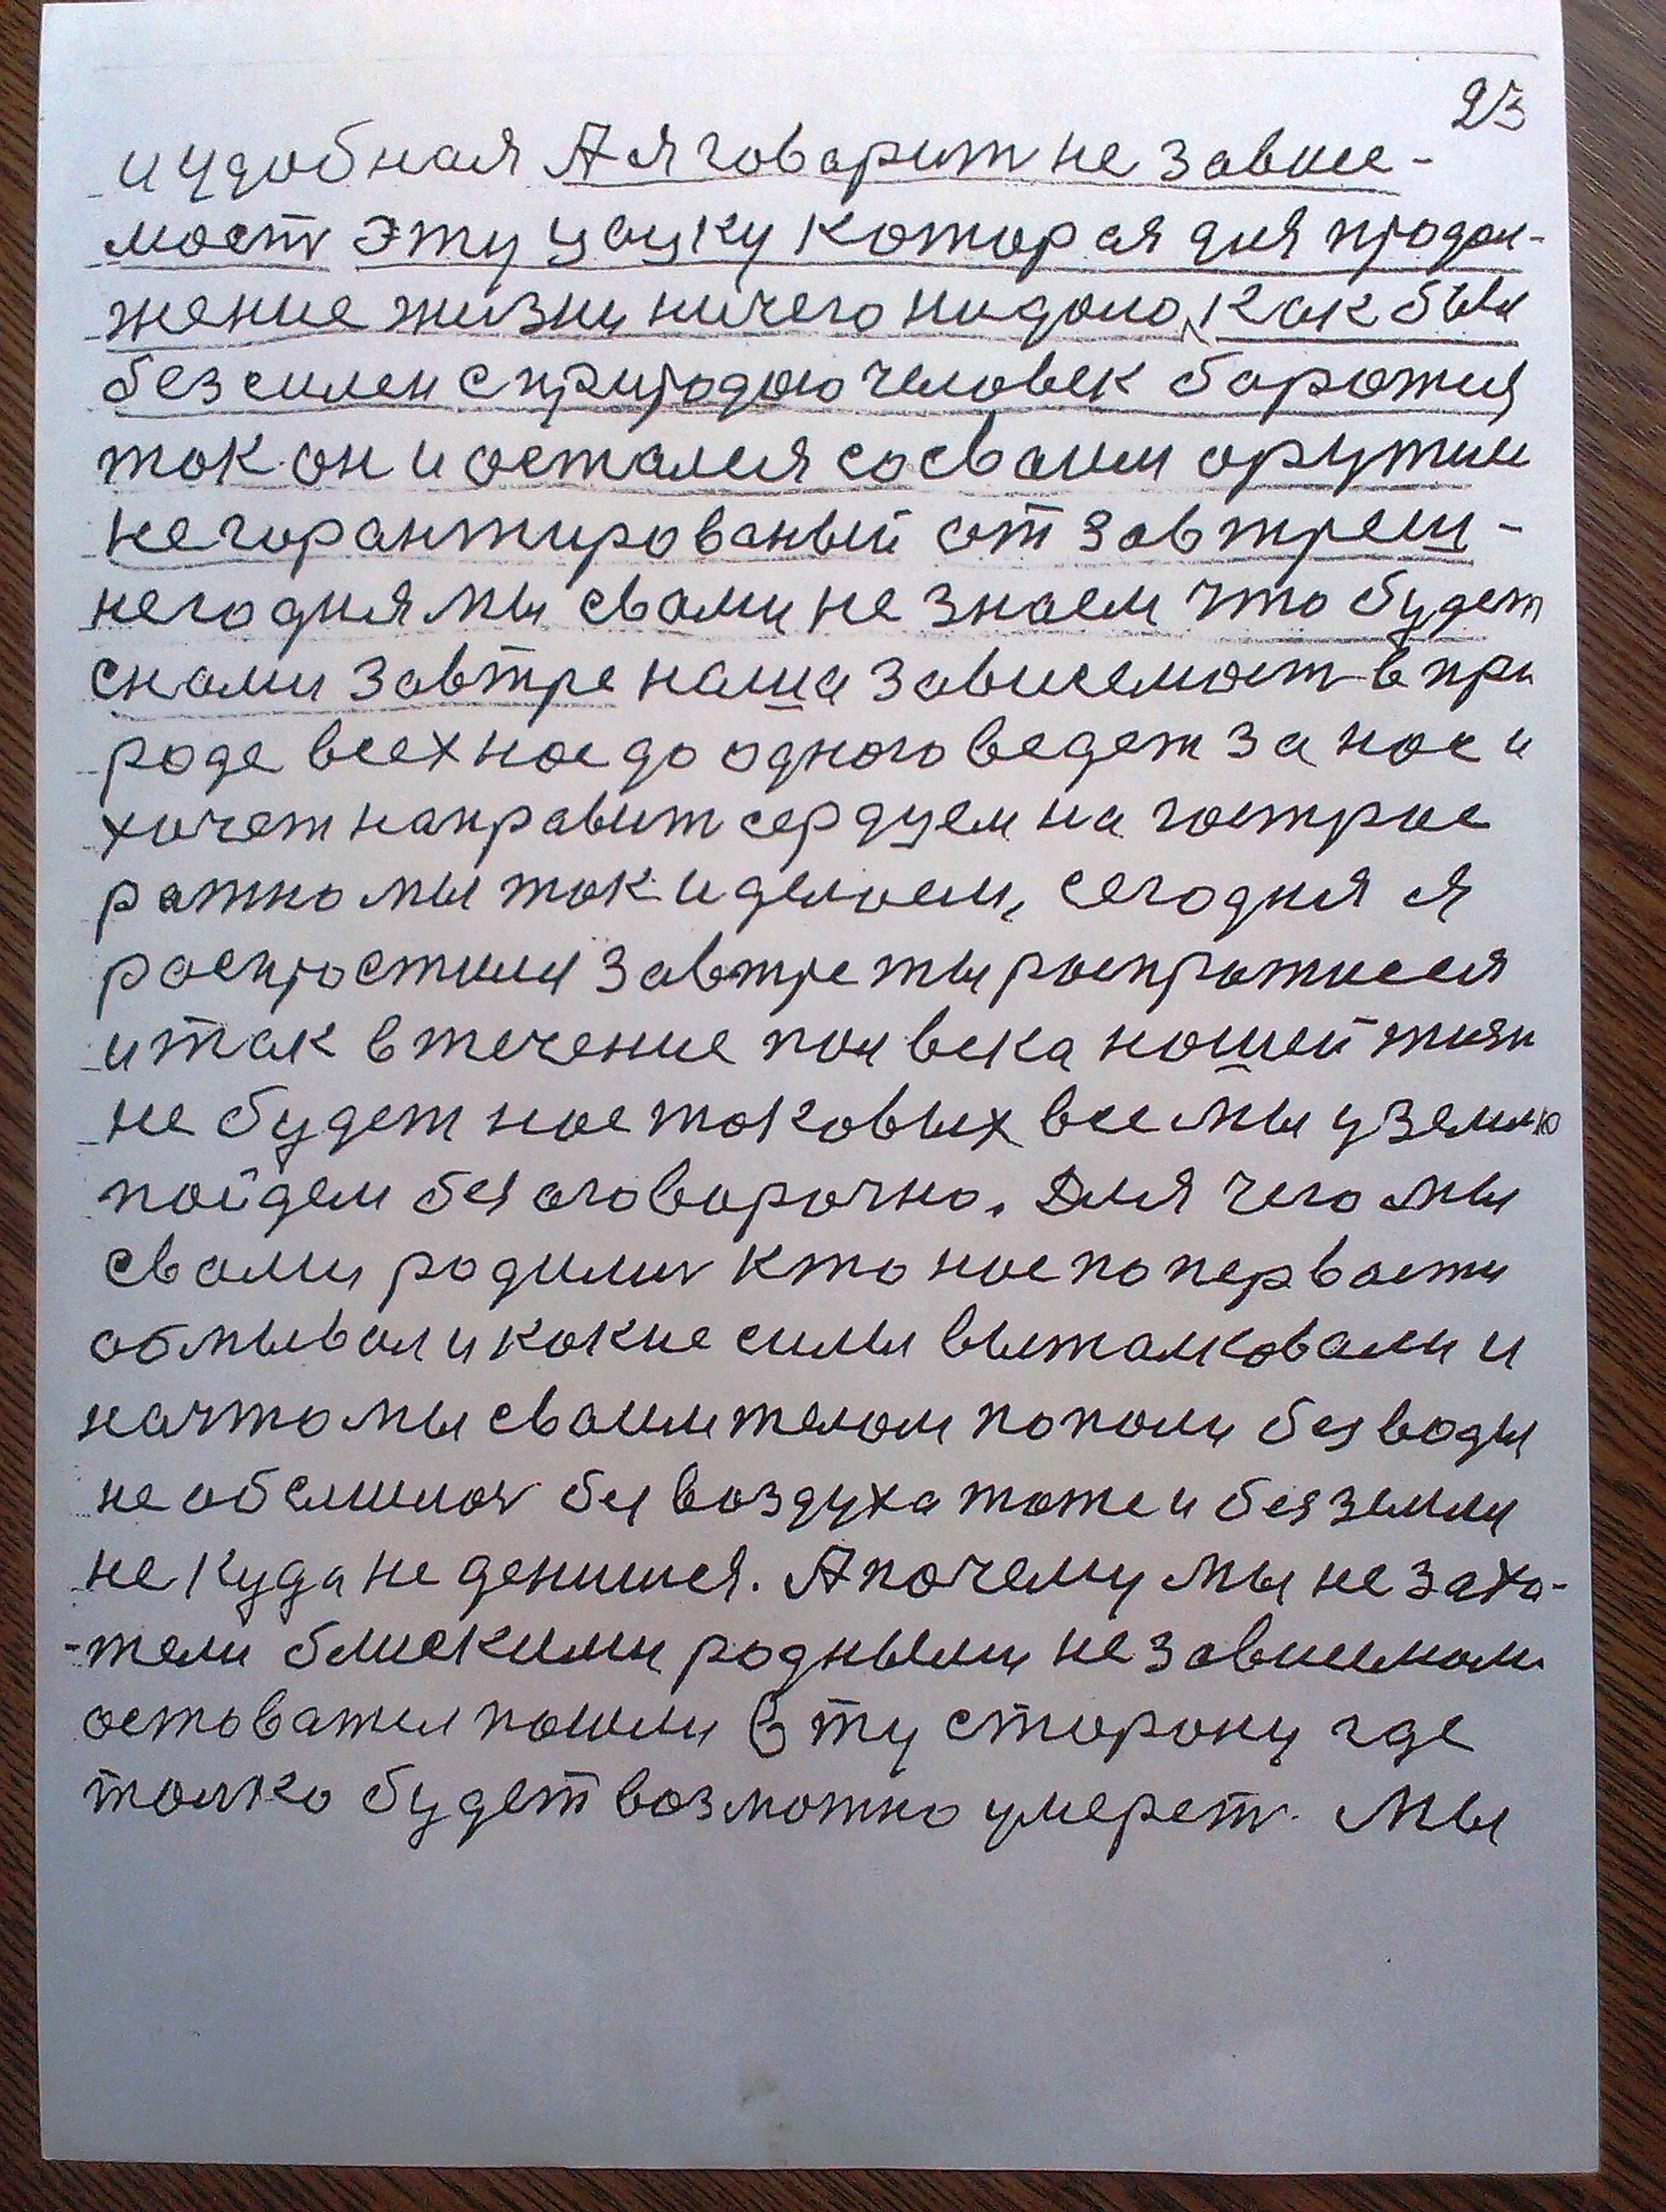 23
и удобная А я говарит не завис-
мост эту цацку которая для продол-
жение жизни ничего нидало, как был
безсилен с природою человек боротия
так он и осталия со сваим оружим
негорантированый от завтреш-
него дня мы свами не знаем что будет
снами завтре наша зависемост в при
роде всех нас до одного ведет за нос и
хочет направит сердцем на гострое
ратно мы так и делоем, сегодня я
распростился завтре ты распротисся
и так в течение пол века нашей жизн
не будет нас таковых все мы у землю
пойдем без оговорочно. Для чего мы
свами родилис кто нас по первасти
обмывал и какие силы выталковали и
начто мы сваим телом попали без воды
не обслилос без воздуха тоже и без земли
не куда не денишся. А почему мы не захо-
-тели блискими родными независимами
оставатся пошли в ту сторону где
толко будет возможно умерет. Мы